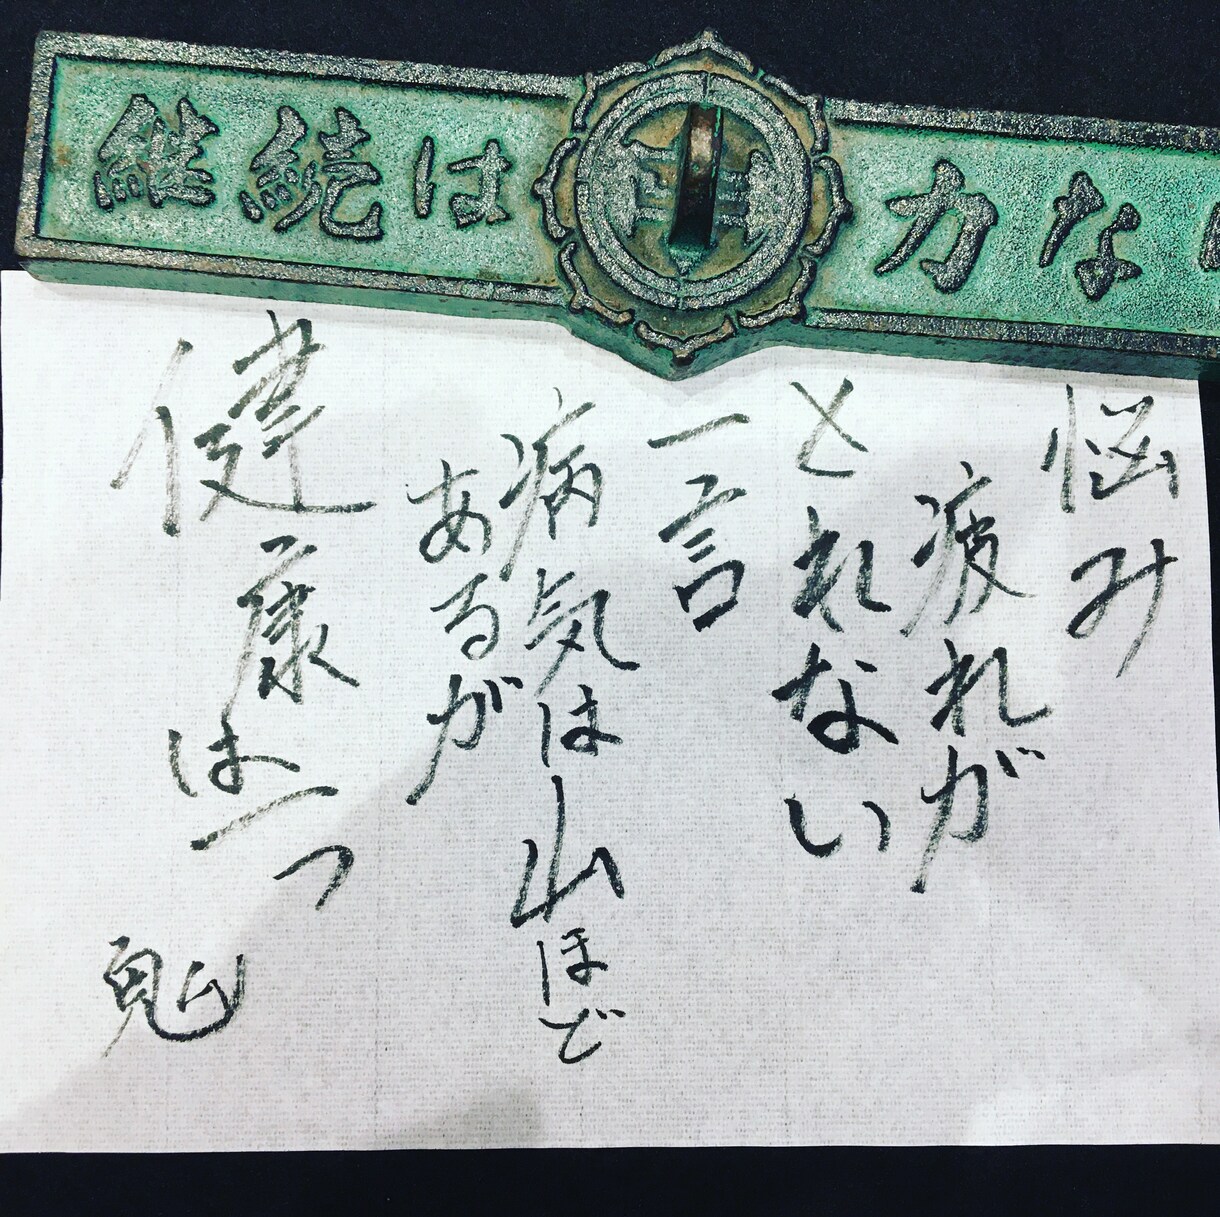 継続は力な
悩み
疲れが
とれない
一言
病気は山ほど
あるが
健康は一つ
鬼